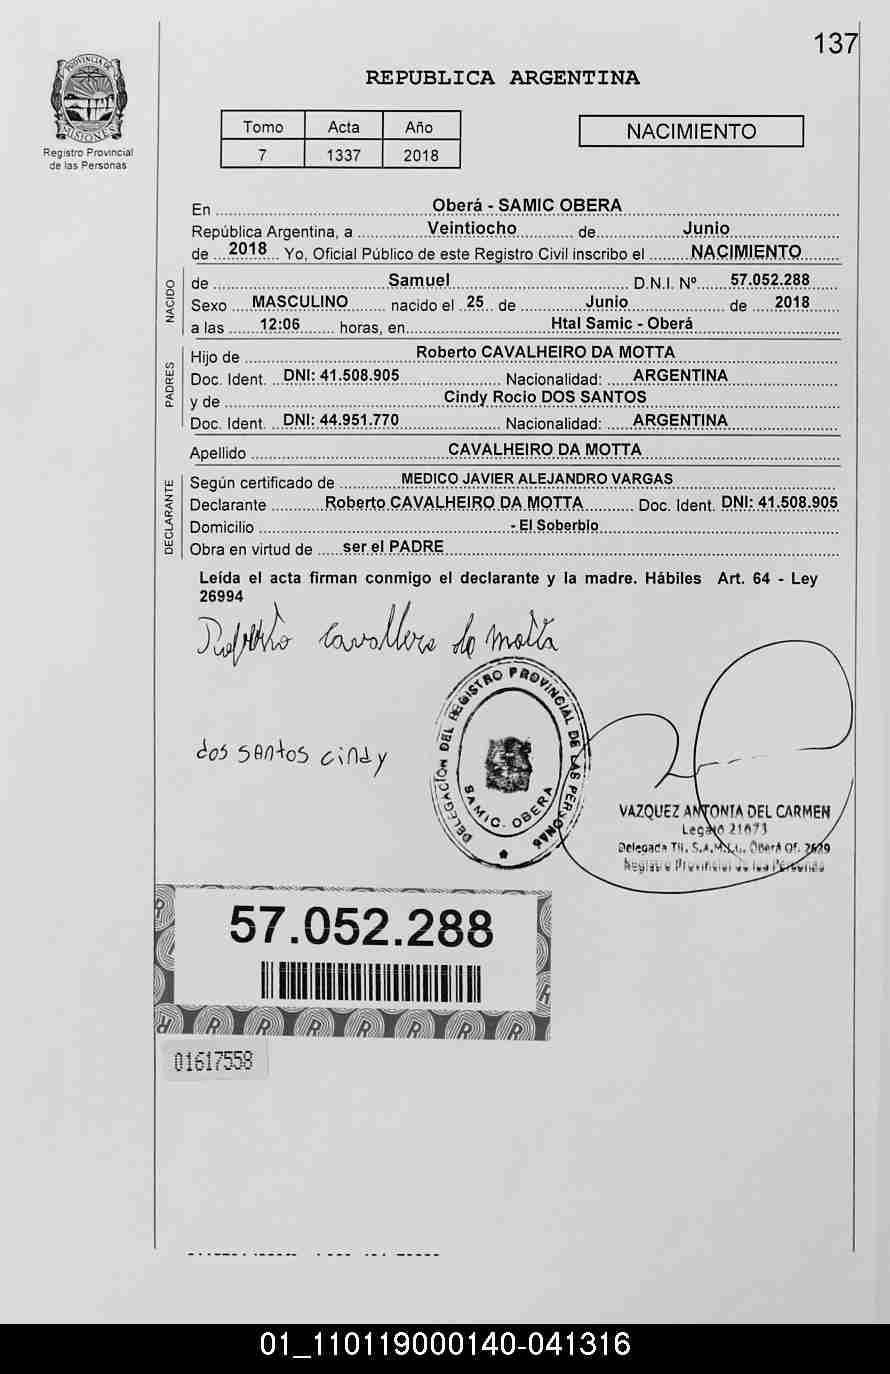 137
PROVINCIA DE
MISIONES
Registro Provincial
de las Personas
REPUBLICA ARGENTINA
Tomo Acta Año
7 1337 2018
NACIMIENTO
En Oberá - SAMIC OBERA
República Argentina, a Veintiocho de Junio
de 2018 Yo, Oficial Público de este Registro Civil inscribo el NACIMIENTO
NACIDO
de Samuel D.N.I. Nº 57.052.288
Sexo MASCULINO nacido el 25 de Junio de 2018
a las 12:06 horas, en Htal Samic - Oberá
PADRES
Hijo de Roberto CAVALHEIRO DA MOTTA
Doc. Ident. DNI: 41.508.905 Nacionalidad: ARGENTINA
y de Cindy Rocio DOS SANTOS
Doc. Ident. DNI: 44.951.770 Nacionalidad: ARGENTINA
Apellido CAVALHEIRO DA MOTTA
DECLARANTE
Según certificado de MEDICO JAVIER ALEJANDRO VARGAS
Declarante Roberto CAVALHEIRO DA MOTTA Doc. Ident. DNI: 41.508.905
Domicilio - El Soberbio
Obra en virtud de ser el PADRE
Leída el acta firman conmigo el declarante y la madre. Hábiles Art. 64 - Ley
26994
da Motta
dos santos cindy
DELEGACIÓN DEL REGISTRO PROVINCIAL DE LAS PERSONAS
SAMIC. OBERA
VAZQUEZ ANTONIA DEL CARMEN
Legajo 21673
Delegada Tit. S.A.M.I.C. Oberá Of. 2629
Registro Provincial de las Personas
57.052.288
01617558
01_110119000140-041316